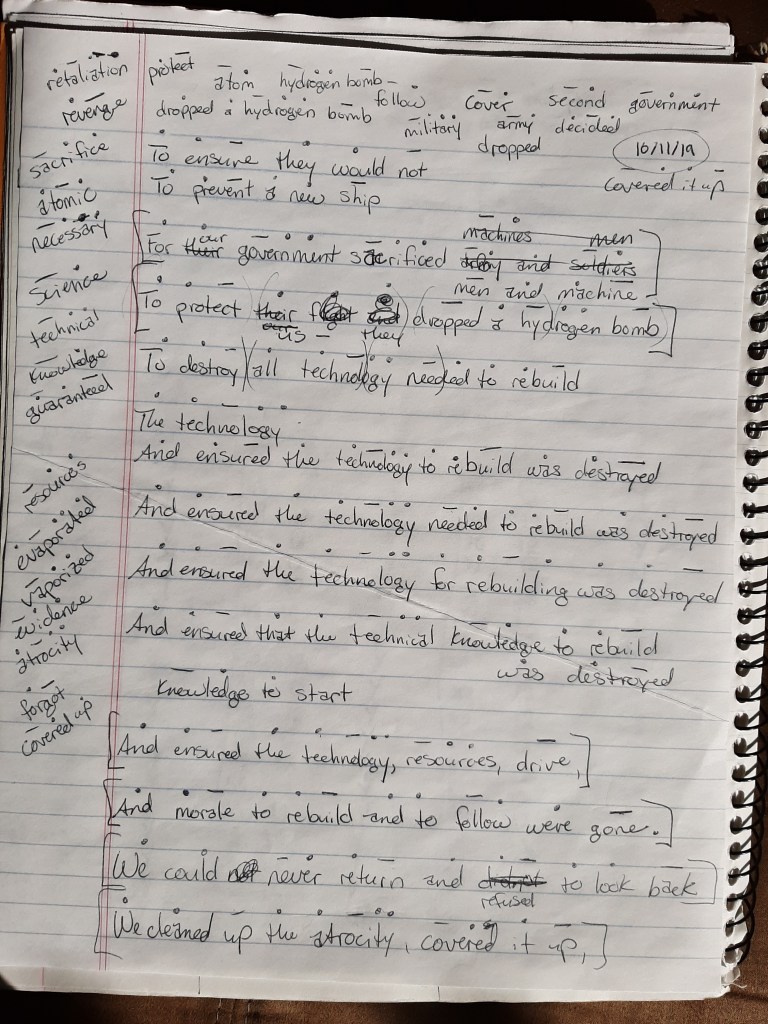 retaliation
revenge
sacrifice
atomic
necessary
science
technical
knowledge
guaranteed
resources
evaporated
vaporized
evidence
atrocity
forgot
covered up
protect atom hydrogen bomb - follow cover second government
dropped a hydrogen bomb military army decided
dropped 10/11/19
Covered it up
To ensure they would not
To prevent a new ship
machines men
For their our government sacrificed and soldiers
men and machine
To protect their and dropped a hydrogen bomb
us - they
To destroy all technology needed to rebuild
The technology
And ensured the technology to rebuild was destroyed
And ensured the technology needed to rebuild was destroyed
And ensured the technology for rebuilding was destroyed
And ensured that the technical knowledge to rebuild
was destroyed
Knowledge to start
And ensured the technology, resources, drive,
And morale to rebuild and to follow were gone.
We could not never return and to look back
refused
We cleaned up the atrocity, covered it up,